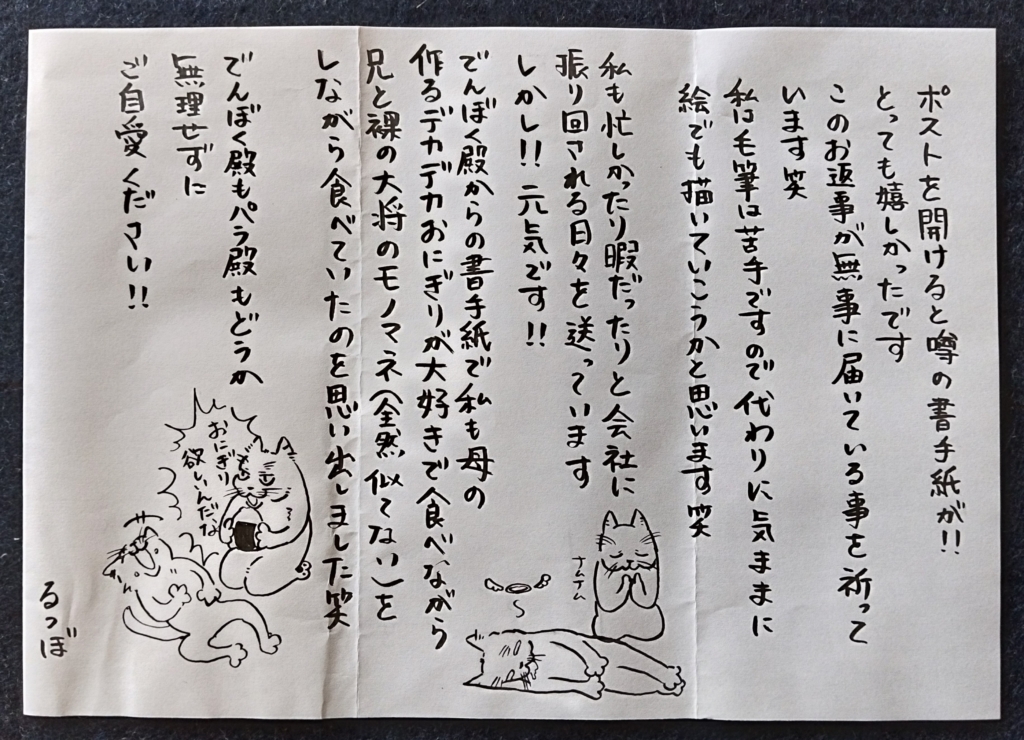 ポストを開けると噂の書手紙が!!
とっても嬉しかったです
このお返事が無事に届いている事を祈って
います笑
私は毛筆は苦手ですので代わりに気ままに
絵でも描いていこうかと思います笑
私も忙しかったり暇だったりと会社に
振り回される日々を送っています
しかし!!元気です!!
でんぼく殿からの書手紙で私も母の
作るデカデカおにぎりが大好きで食べながら
兄と裸の大将のモノマネ(全然似てない)を
しながら食べていたのを思い出しました笑
でんぼく殿もパラ殿もどうか
無理せずに
ご自愛くださいい!!
ナムナム
おにぎり
欲しいんだな
るっぼ